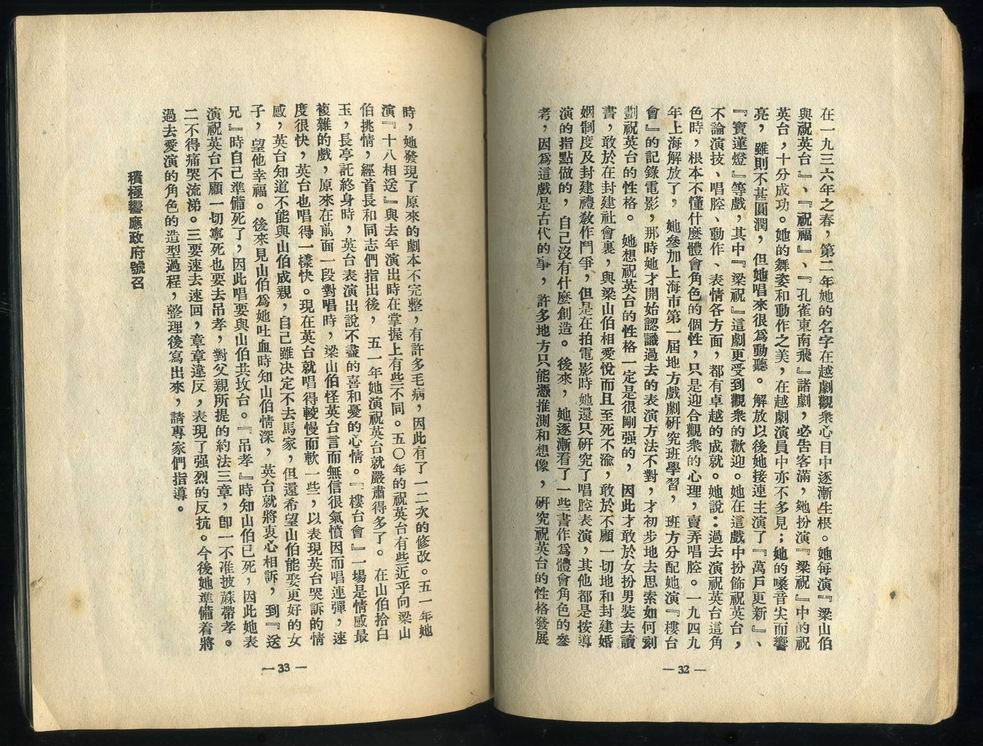 在一九三六年之春，第二年她的名字在越劇觀衆心目中逐漸生根。她每演『梁山伯
與祝英台』、『祝福』、『孔雀東南飛』諸劇，必告客滿，她扮演『梁祝』中的祝
英台，十分成功。她的舞姿和動作之美，在越劇演員中亦不多見；她的嗓音尖而響
亮，雖則不甚圓潤，但她唱來很爲動聽。解放以後她接連主演了『萬戶更新』、
『寶蓮燈』等戲，其中『梁祝』這劇更受到觀衆的歡迎。她在這戲中扮飾祝英台，
不論演技、唱腔、動作、表情各方面，都有卓越的成就。她說：過去演祝英台這角
色時，根本不懂什麼體會角色的個性，只是迎合觀衆的心理，賣弄唱腔。一九四九
年上海解放了，她參加上海市第一屆地方戲劇研究班學習，班方分配她演『樓台
會』的記錄電影，那時她才開始認識過去的表演方法不對，才初步地去思索如何刻
劃祝英台的性格。她想祝英台的性格一定是很剛强的，因此才敢於女扮男裝去讀
書，敢於在封建社會裏，與梁山伯相愛悅而且至死不渝，敢於不顧一切地和封建婚
姻制度及封建禮敎作鬥爭，但是在拍電影時她還只研究了唱腔表演，其他都是按導
演的指點做的，自己沒有什麼創造。後來，她逐漸看了一些書作爲體會角色的參
考，因爲這戲是古代的事，許多地方只能憑推測和想像，研究祝英台的性格發展
— 32 —
時，她發現了原來的劇本不完整，有許多毛病，因此有了一二次的修改。五一年她
演『十八相送』與去年演出時在掌握上有些不同。五〇年的祝英台有些近乎向梁山
伯挑情，經首長和同志們指出後，五一年她演祝英台就嚴肅得多了。在山伯拾白
玉，長亭託終身時，英台表演出說不盡的喜和憂的心情。『樓台會』一場是情感最
複雜的戲，原來在前面一段對唱時，梁山伯怪英台言而無信很氣憤因而唱連彈，速
度很快，英台也唱得一樣快。現在英台就唱得較慢而軟一些，以表現英台哭訴的情
感，英台知道不能與山伯成親，自己雖決定不去馬家，但還希望山伯能娶更好的女
子，望他幸福。後來見山伯爲她吐血時知山伯情深，英台就將衷心相訴，到『送
兄』時自己準備死了，因此唱要與山伯共坟台。『吊孝』時知山伯已死，因此她表
演祝英台不顧一切寧死也要去吊孝，對父親所提的約法三章，卽一不准披蔴帶孝。
二不得痛哭流涕。三要速去速回，章章違反，表現了强烈的反抗。今後她準備着將
過去愛演的角色的造型過程，整理後寫出來，請專家們指導。
積極響應政府號召
— 33 —